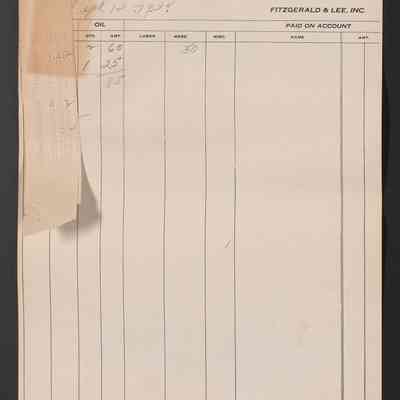 FITZGERALD & LEE, INC.
OIL PAID ON ACCOUNT
QTS. AMT. LABOR MDSE. MISC. NAME AMT.
2 60 50
1 25
85